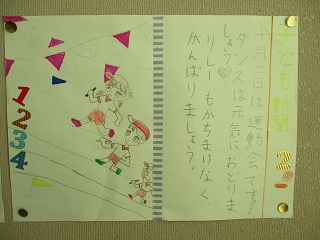 子ども新聞
十月二日は運動会です!
ダンスは元気におどりま
しょう♡
リレーもかちまけなく
がんばりましょう!
1
2
3
4